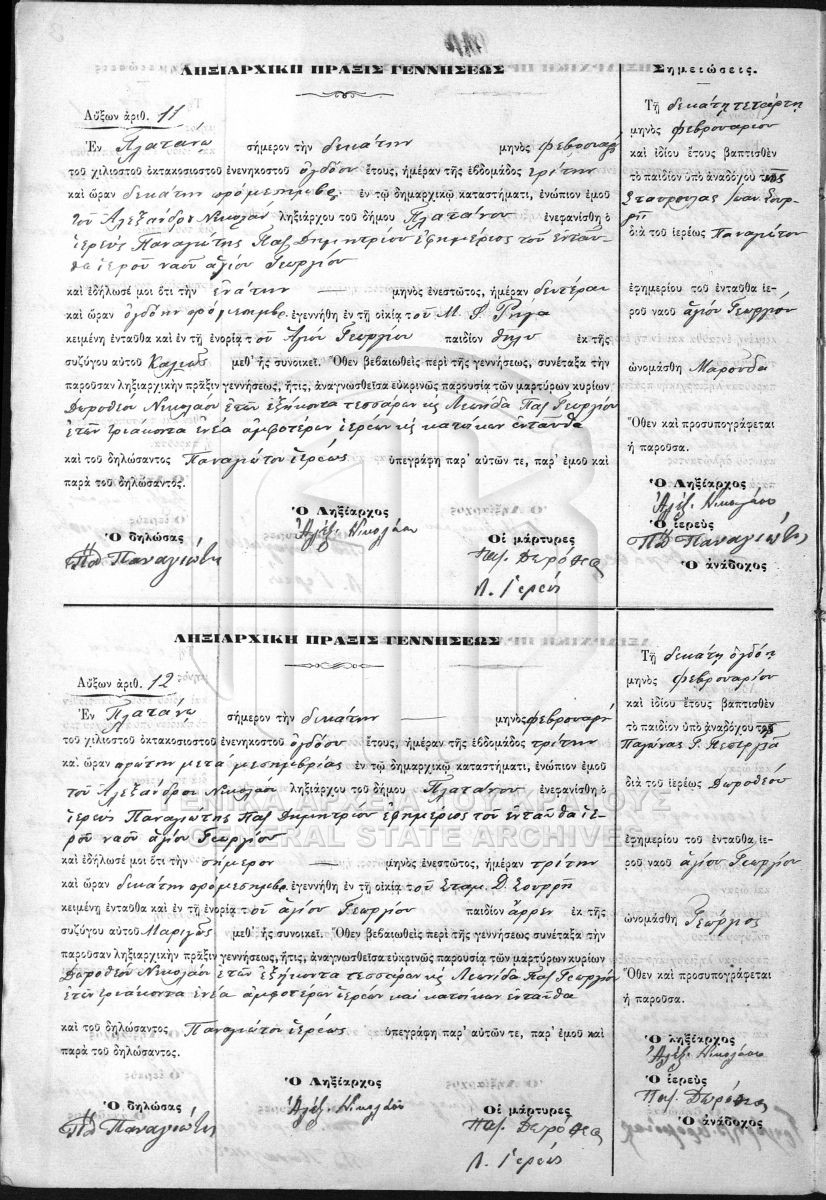 ΛΗΞΙΑΡΧΙΚΗ ΠΡΑΞΙΣ ΓΕΝΝΗΣΕΩΣ
Αὔξων ἀριθ. 11
Ἐν Πλατάνῳ σήμερον τὴν δεκάτην μηνὸς φεβρουαρίου
τοῦ χιλιοστοῦ ὀκτακοσιοστοῦ ἐνενηκοστοῦ ὀγδόου ἔτους, ἡμέραν τῆς ἑβδομάδος τρίτην
καὶ ὥραν δεκάτην πρό μεσημβρίας ἐν τῷ δημαρχικῷ καταστήματι, ἐνώπιον ἐμοῦ
τοῦ Αλεξάνδρου Νικολάου ληξιάρχου τοῦ δήμου Πλατάνου ἐνεφανίσθη ὁ
ἱερεύς Παναγιώτης Παπ Δημητρίου ἐφημέριος τοῦ ἐνταῦ-
θα ἱεροῦ ναοῦ ἁγίου Γεωργίου
καὶ ἐδήλωσέ μοι ὅτι τὴν ἐνάτην — μηνὸς ἐνεστῶτος, ἡμέραν δευτέραν
καὶ ὥραν ὀγδόην πρό μεσημβρ. ἐγεννήθη ἐν τῇ οἰκίᾳ τοῦ Μ. Ρήγα
κειμένῃ ἐνταῦθα καὶ ἐν τῇ ἐνορίᾳ τοῦ Ἁγίου Γεωργίου παιδίον θῆλυ ἐκ τῆς
συζύγου αὐτοῦ Καλιῶς μεθ' ἧς συνοικεῖ. Ὅθεν βεβαιωθεὶς περὶ τῆς γεννήσεως, συνέταξα τὴν
παροῦσαν ληξιαρχικὴν πρᾶξιν γεννήσεως, ἥτις, ἀναγνωσθεῖσα εὐκρινῶς παρουσίᾳ τῶν μαρτύρων κυρίων
Δωροθέου Νικολάου ἐτῶν ἑξήκοντα τεσσάρων κς Λεωνίδα Παπ Γεωργίου
ἐτῶν τριάκοντα ἐνέα ἀμφοτέρων ἱερέων κς κατοίκων ἐνταῦθα
καὶ τοῦ δηλώσαντος Παναγιώτου ἱερέως ὑπεγράφη παρ' αὐτῶν τε, παρ' ἐμοῦ καὶ
παρὰ τοῦ δηλώσαντος.
Ὁ Ληξίαρχος
Ἀλέξ. Νικολάου
Ὁ δηλώσας
Παναγιώτης
Οἱ μάρτυρες
Παπ. Δωρόθεος
Λ. Ἱερεύς
Σημειώσεις.
Τῇ δεκάτῃ τετάρτῃ
μηνὸς φεβρουαρίου
καὶ ἰδίου ἔτους βαπτισθὲν
τὸ παιδίον ὑπὸ ἀναδόχου τῆς
Σταυρούλας Ἰωαν. Σουρ-
ρῆ
διὰ τοῦ ἱερέως Παναγιώτου
ἐφημερίου τοῦ ἐνταῦθα ἱε-
ροῦ ναοῦ ἁγίου Γεωργίου
ὠνομάσθη Μαρούδα
Ὅθεν καὶ προσυπογράφεται
ἡ παροῦσα.
Ὁ Ληξίαρχος
Ἀλέξ. Νικολάου
Ὁ ἱερεὺς
Παναγιώτης
Ὁ ἀνάδοχος
ΛΗΞΙΑΡΧΙΚΗ ΠΡΑΞΙΣ ΓΕΝΝΗΣΕΩΣ
Αὔξων ἀριθ. 12
Ἐν Πλατάνῳ σήμερον τὴν δεκάτην — μηνὸς φεβρουαρίου
τοῦ χιλιοστοῦ ὀκτακοσιοστοῦ ἐνενηκοστοῦ ὀγδόου ἔτους, ἡμέραν τῆς ἑβδομάδος τρίτην
καὶ ὥραν πρώτην μετά μεσημβρίας ἐν τῷ δημαρχικῷ καταστήματι, ἐνώπιον ἐμοῦ
τοῦ Αλεξάνδρου Νικολάου ληξιάρχου τοῦ δήμου Πλατάνου ἐνεφανίσθη ὁ
ἱερεύς Παναγιώτης Παπ Δημητρίου ἐφημέριος τοῦ ἐνταῦθα ἱε-
ροῦ ναοῦ ἁγίου Γεωργίου
καὶ ἐδήλωσέ μοι ὅτι τὴν σήμερον — μηνὸς ἐνεστῶτος, ἡμέραν τρίτην
καὶ ὥραν δεκάτην πρό μεσημβρ. ἐγεννήθη ἐν τῇ οἰκίᾳ τοῦ Σταμ. Δ. Σουρρῆ
κειμένῃ ἐνταῦθα καὶ ἐν τῇ ἐνορίᾳ τοῦ ἁγίου Γεωργίου παιδίον ἄρρεν ἐκ τῆς
συζύγου αὐτοῦ Μαριγῶς μεθ' ἧς συνοικεῖ. Ὅθεν βεβαιωθεὶς περὶ τῆς γεννήσεως συνέταξα τὴν
παροῦσαν ληξιαρχικὴν πρᾶξιν γεννήσεως, ἥτις, ἀναγνωσθεῖσα εὐκρινῶς παρουσίᾳ τῶν μαρτύρων κυρίων
Δωροθέου Νικολάου ἐτῶν ἑξήκοντα τεσσάρων κς Λεωνίδα Παπ Γεωργίου
ἐτῶν τριάκοντα ἐνέα ἀμφοτέρων ἱερέων καὶ κατοίκων ἐνταῦθα
καὶ τοῦ δηλώσαντος Παναγιώτου ἱερέως ὑπεγράφη παρ' αὐτῶν τε, παρ' ἐμοῦ καὶ
παρὰ τοῦ δηλώσαντος.
Ὁ Ληξίαρχος
Ἀλέξ. Νικολάου
Ὁ δηλώσας
Παναγιώτης
Οἱ μάρτυρες
Παπ. Δωρόθεος
Λ. Ἱερεύς
Τῇ δεκάτῃ ὀγδόῃ
μηνὸς φεβρουαρίου
καὶ ἰδίου ἔτους βαπτισθὲν
τὸ παιδίον ὑπὸ ἀναδόχου τῆς
διὰ τοῦ ἱερέως Δωροθέου
ἐφημερίου τοῦ ἐνταῦθα ἱε-
ροῦ ναοῦ ἁγίου Γεωργίου
ὠνομάσθη Γεώργιος
Ὅθεν καὶ προσυπογράφεται
ἡ παροῦσα.
Ὁ ληξίαρχος
Ἀλέξ. Νικολάου
Ὁ ἱερεὺς
Παπ. Δωρόθεος
Ὁ ἀνάδοχος
ΓΕΝΙΚΑ ΑΡΧΕΙΑ ΤΟΥ ΚΡΑΤΟΥΣ
GENERAL STATE ARCHIVES